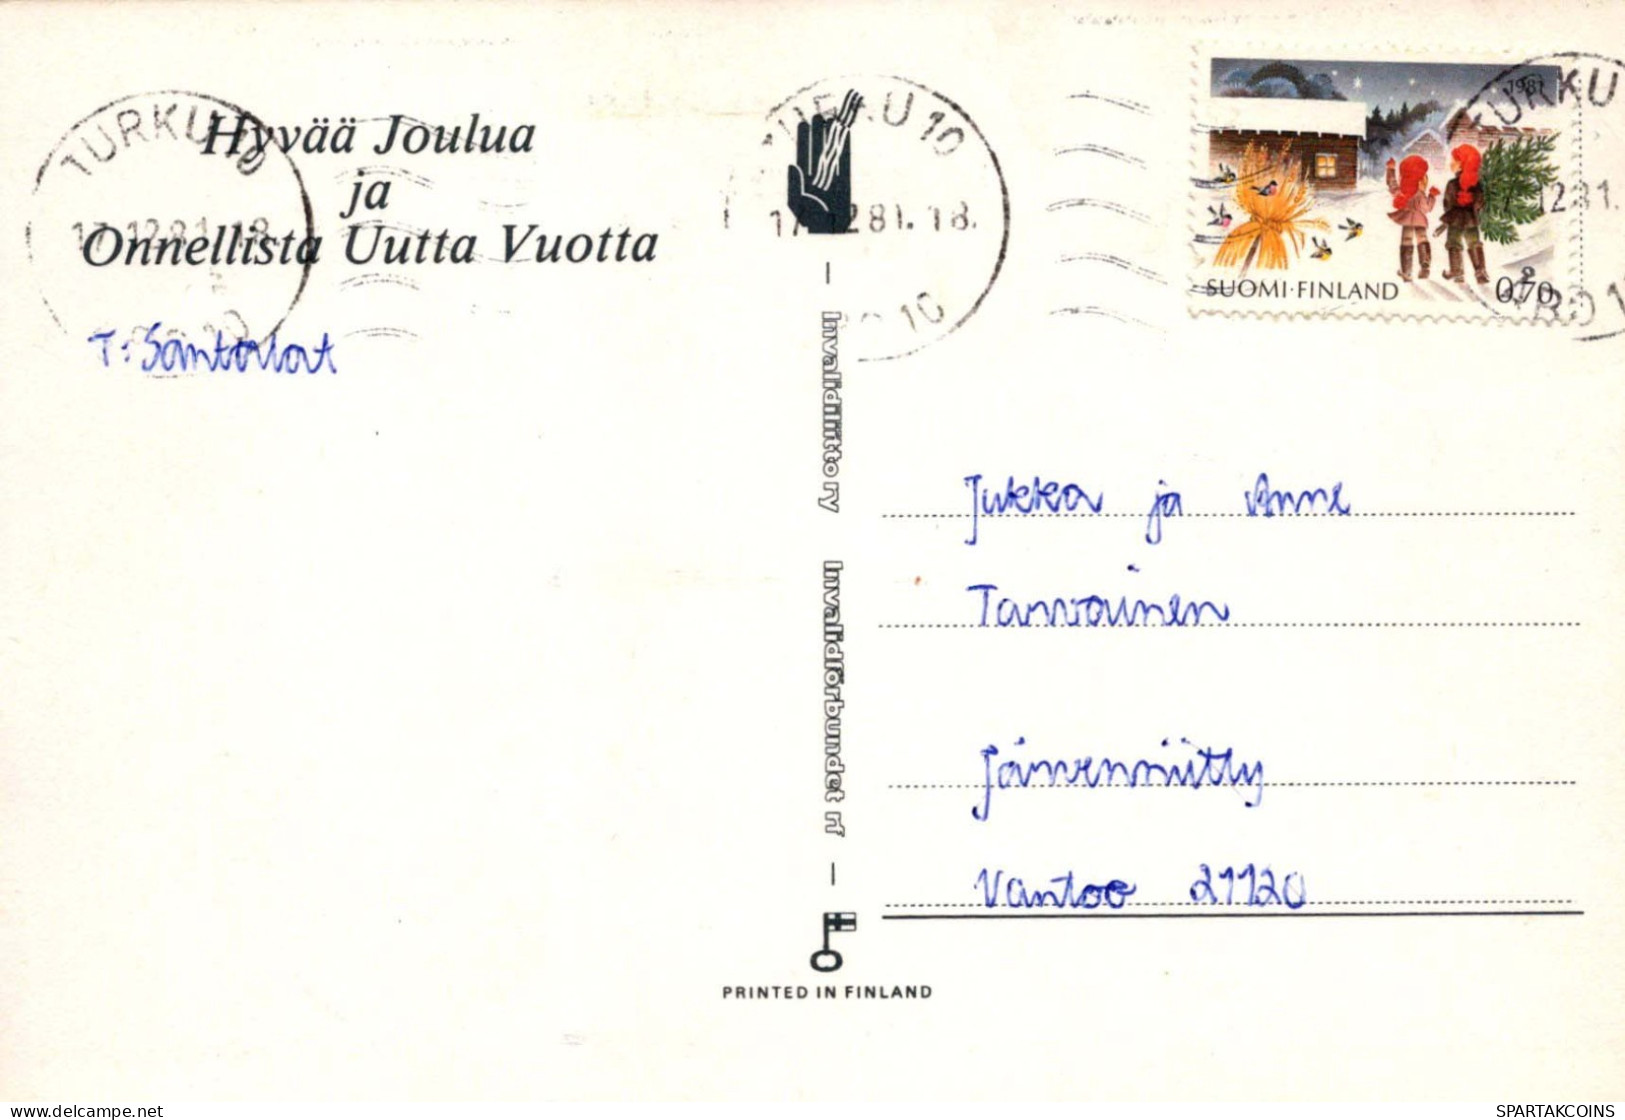 Hyvää Joulua
ja
Onnellista Uutta Vuotta
T: Santalat
TURKU 10
17.12.81. 18
TURKU 10
17.12.81. 18.
10
1981
SUOMI·FINLAND
0,70
TURKU
12.81.
Invalidiliitto ry
Invalidförbundet rf
Jukka ja Anne
Tarvainen
Järvenniitty
Vantoo 21120
PRINTED IN FINLAND
delcampe.net
SPARTAKCOINS